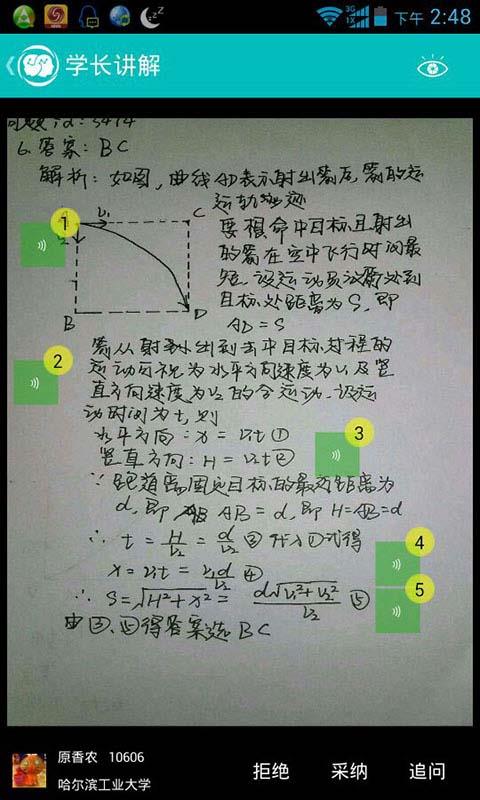 下午 2:48
学长讲解
6. 答案: BC
解析: 如图, 曲线AD表示射出箭后, 箭的运
运动轨迹
1
V₁
C
要想命中目标且射出
的箭在空中飞行时间最
短. 设运动员放箭处到
目标处距离为S, 即
AD = S
B
D
2
箭从射出到击中目标过程的
运动可视为水平方向速度为V₁及竖
直方向速度为V₂的合运动. 设运
动时间为t, 则
水平方向: x = V₁t ①
3
竖直方向: H = V₂t ②
∵ 跑道离固定目标的最近距离为
d, 即 AB = d, 即 H=AB=d
∴ t = H/V₂ = d/V₂ ③ 代入①式得
4
x = V₁t = V₁d/V₂ ④
5
∴ S = √(H²+x²) = d√(V₁²+V₂²)/V₂ ⑤
由③、⑤得答案选BC
原香农 10606
哈尔滨工业大学
拒绝 采纳 追问